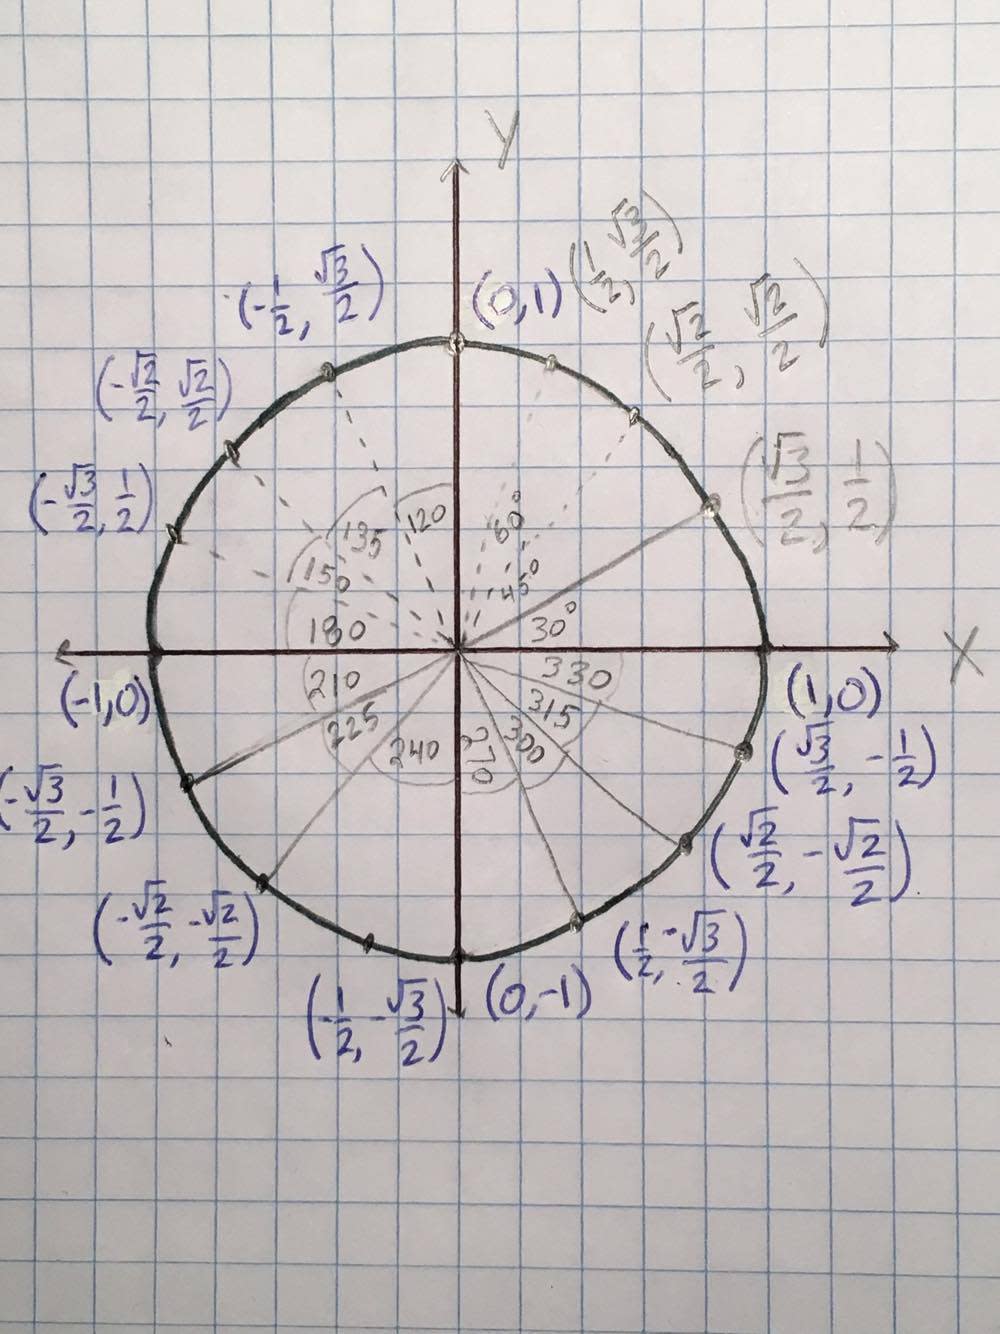 Y
(0,1)
(1/2, √3/2)
(-1/2, √3/2)
(√2/2, √2/2)
(-√2/2, √2/2)
(√3/2, 1/2)
(-√3/2, 1/2)
135
120
60°
150
45°
180
30°
X
210
330
(-1,0)
(1,0)
225
315
240
270
300
(√3/2, -1/2)
(-√3/2, -1/2)
(√2/2, -√2/2)
(-√2/2, -√2/2)
(1/2, -√3/2)
(-1/2, -√3/2)
(0,-1)